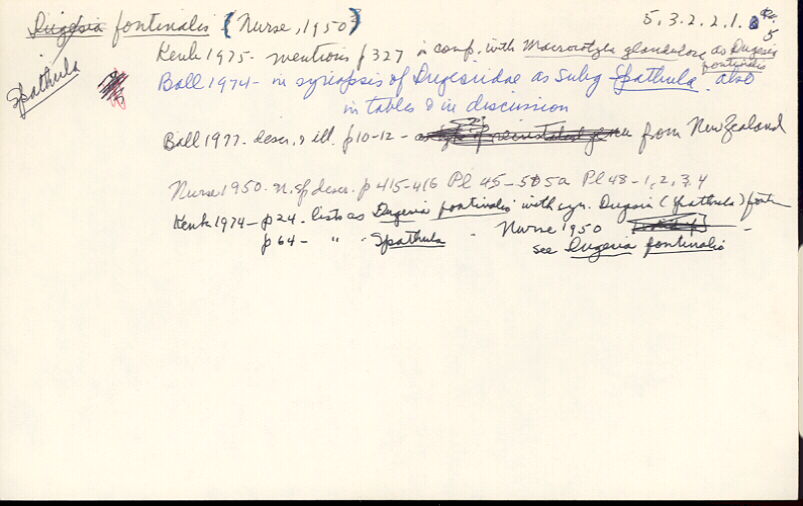 Dugesia fontinalis (Nurse, 1950) 5.3.2.2.1.
5
Spathula
Kenk 1975- mentions p 327 in comp. with Macrocotyla glandulosa as Dugesia fontinalis
Ball 1974- in synopsis of Dugesiidae as subg Spathula. also
in tables & in discussion
Ball 1977. descr. & ill. p 10-12 - from New Zealand
Nurse 1950. n. sp descr. p 415-416 Pl 45-5 5a Pl 48-1, 2, 3, 4
Kenk 1974- p 24. lists as Dugesia fontinalis with syn. Dugesia (Spathula) font
p 64- " - Spathula - Nurse 1950 -
see Dugesia fontinalis